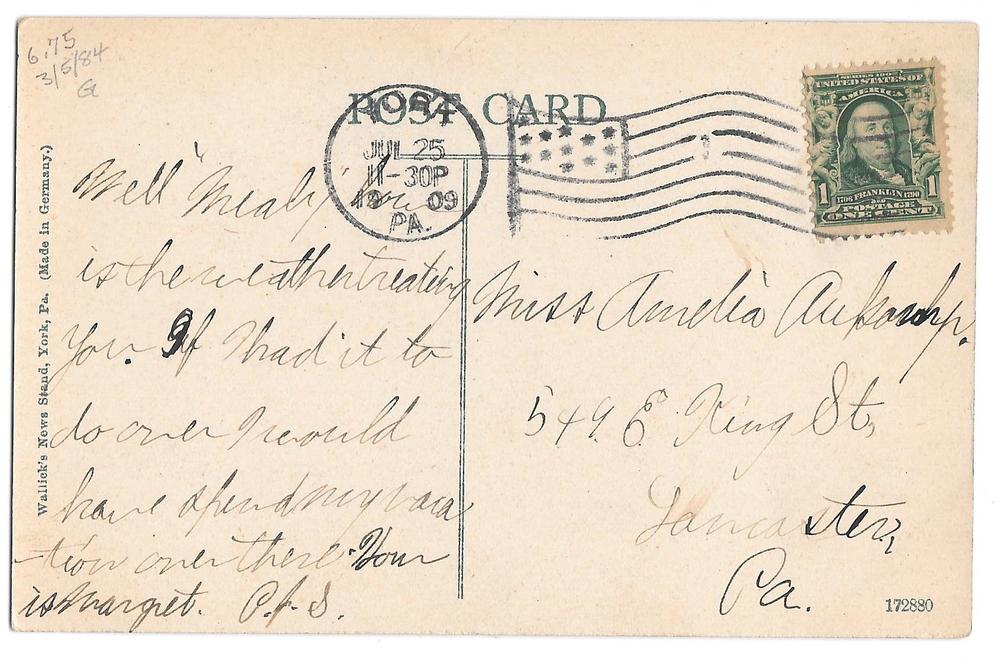 6.75
3/5/84
G
POST CARD
YORK
JUL 25
11-30P
19 09
PA.
SERIES 1902
UNITED STATES OF
AMERICA
1 1706 FRANKLIN 1790 1
POSTAGE
ONE CENT
Wallick's News Stand, York, Pa. (Made in Germany.)
Well "Mealy" how
is the weather treating
you. If I had it to
do over I would
have spend my vaca
-tion over there. How
is Margret. P.f.S.
Miss Amelia Aukamp.
549 E. King St.,
Lancaster,
Pa.
172880